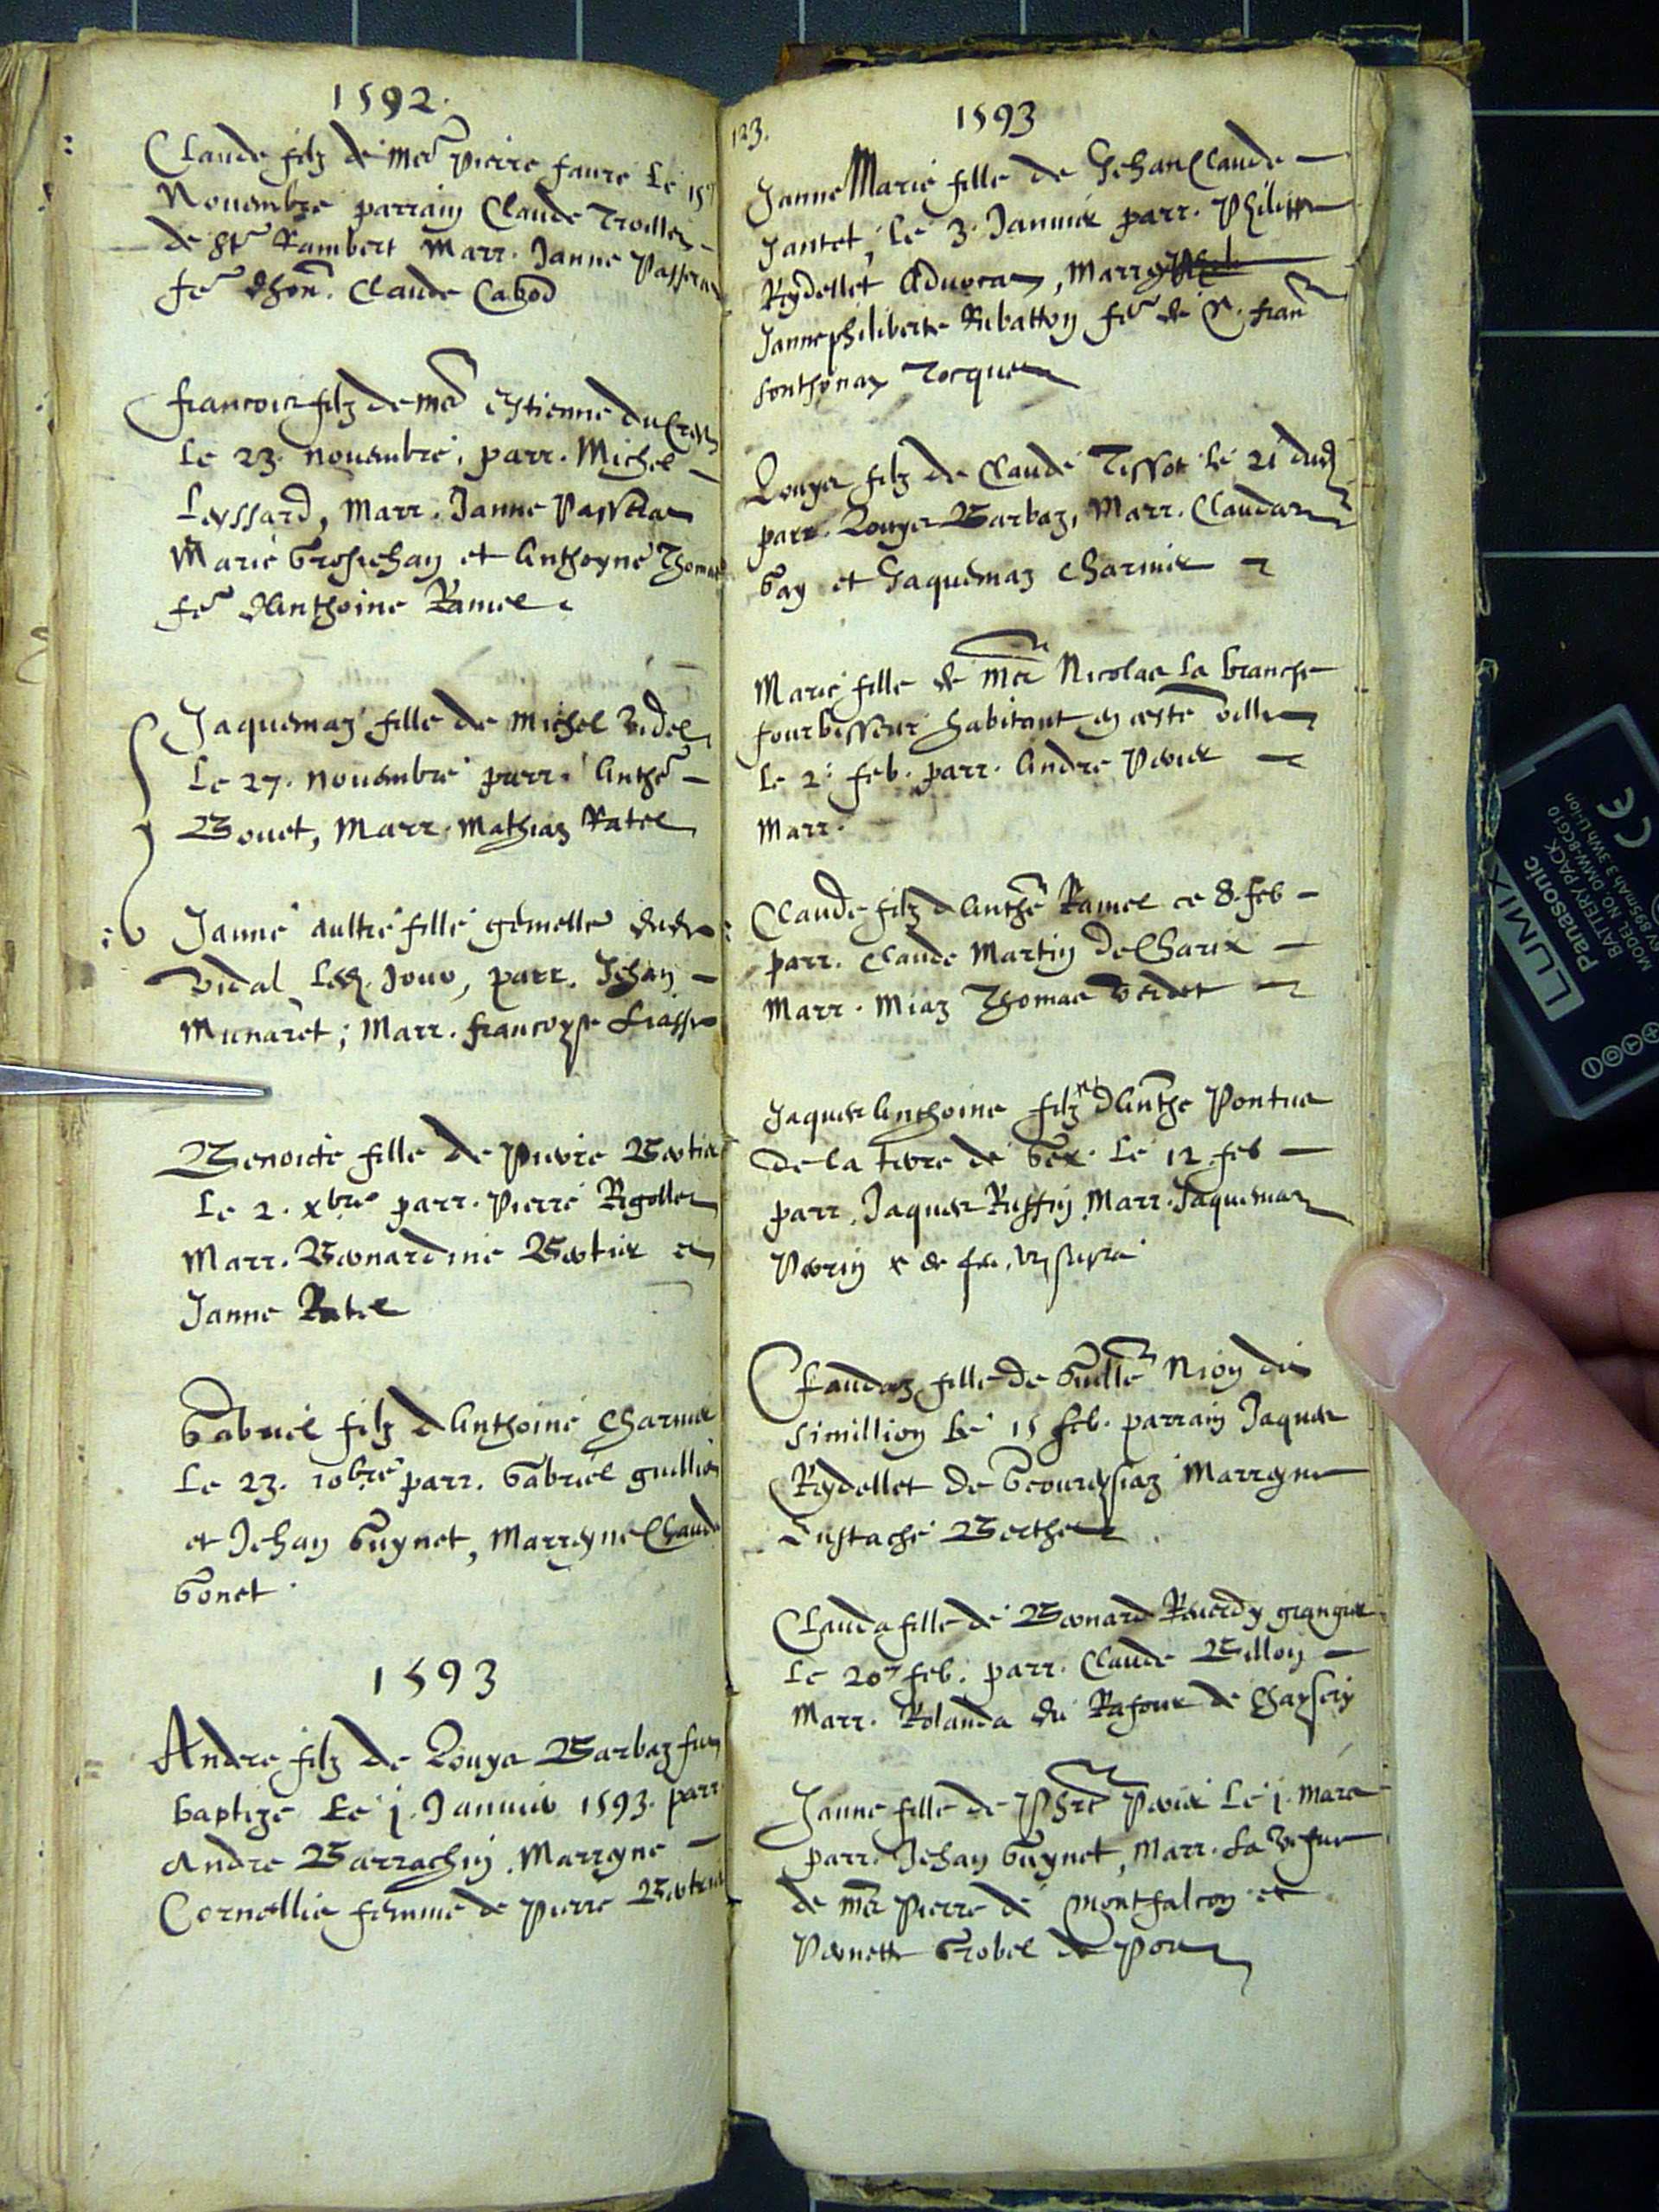 1592.
Claude filz de me Pierre Faure le 15
Nouembre parrain Claude Troillet
de St Rambert Marr. Janne Passera
fe dhon. Claude Cabod
Francois filz de me Estienne du Crest
Le 23. nouembre, parr. Michel
Leyssard, Marr. Janne Passera
Marie Grosjehan et Anthoyne Thomas
fe dAnthoine Ramel
Jaquemaz fille de Michel Videl
Le 27. nouembre parr. Anthe
Bouet, Marr. Mathiaz Ratel
Janne aultre fille gemelle dud
Vidal led. jour, parr. Jehan
Munaret; Marr. francoyse
Benoicte fille de Pierre Bertier
Le 2. xbre parr. Pierre Rigollet
Marr. Bernardine Bertier et
Janne Ratel
Gabriel filz dAnthoine Charmier
Le 23. 10bre parr. Gabriel guillion
et Jehan Guynet, Marreyne Clauda
Gonet
1593
Andre filz de Louys Barbaz fut
baptize Le j. Januier 1593. parr
Andre Barrachin, Marreyne
Cornellie femme de Pierre Bertier
123.
1593
Janne Marie fille de Jehan Claude
Jantet, le 3. Januier parr. Philippe
Reydellet Aduocat, Marr
Jannephiliberte Rubatton fe de S. Fran
Sonthonax Tocquet
Louys filz de Claude Tissot le 21 dud
parr. Louys Barbaz, Marr. Claudaz
Gay et Jaquemaz Charmier
Marie fille de me Nicolas La branche
fourbisseur habitant en ceste ville
le 2. feb. parr. Andre Perier
Marr.
Claude filz dAnthe Ramel ce 8. feb
parr. Claude Martin de Charix
Marr. Miaz Thomas Verdet
Jaques Anthoine filz nl dAnthe Pontus
de la terre de Gex. Le 12 feb
parr. Jaques Ruffin Marr. Jaquemaz
Perrin supra
Claudaz fille de Guille Nion du
Simillion le 15 feb. parrain Jaques
Reydellet de Geoureyssiaz Marreyne
Eustache Berthet
Clauda fille de Bernard Reuerdy grangier
Le 20 feb. parr. Claude Billon
Marr. Rolanda du Rafour de Chaysery
Janne fille de Phet Perier Le j. Mars
parr. Jehan Guynet, Marr. La Vefue
de me Pierre de Montfalcon et
Pernette Grobel de Port
LUMIX
Panasonic
BATTERY PACK
MODEL NO. DMW-BCG10
895mAh 3.3Wh Li-ion
CE